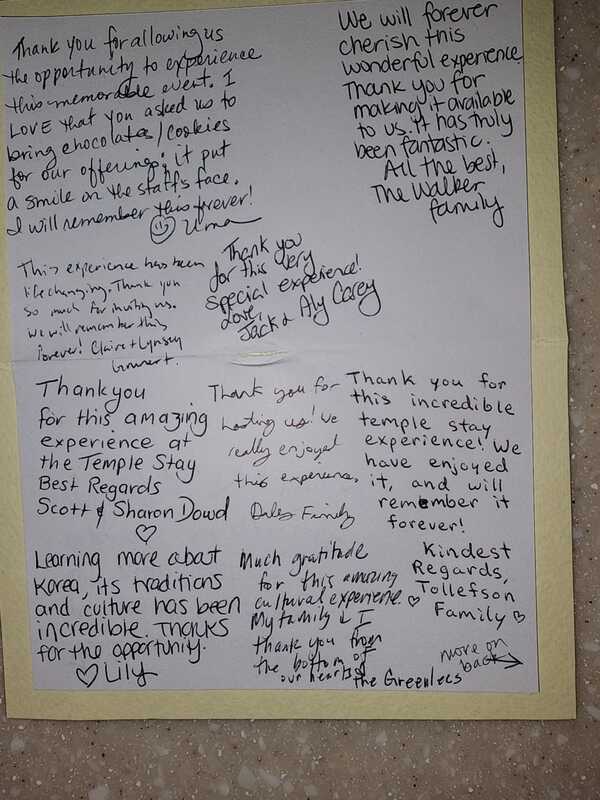 Thank you for allowing us
the opportunity to experience
this memorable event. I
LOVE that you asked us to
bring chocolates/cookies
for our offerings; it put
a smile on the staffs face.
I will remember this forever!
Uma
We will forever
cherish this
wonderful experience.
Thank you for
making it available
to us. It has truly
been fantastic.
All the best,
The Walker
family
This experience has been
life changing. Thank you
so much for inviting us.
We will remember this
forever! Claire + Lynsey
Thank you
for this very
special experience!
Love,
Jack & Aly Carey
Thank you
for this amazing
experience at
the Temple Stay
Best Regards
Scott & Sharon Dowd
Thank you for
hosting us! We
really enjoyed
this experience.
Family
Thank you for
this incredible
temple stay
experience! We
have enjoyed
it, and will
remember it
forever!
Kindest
Regards,
Tollefson
Family
Learning more about
Korea, its traditions
and culture has been
incredible. Thanks
for the opportunity.
Lily
Much gratitude
for this amazing
cultural experience.
My family & I
thank you from
the bottom of
our hearts
the Greenlees
more on
back